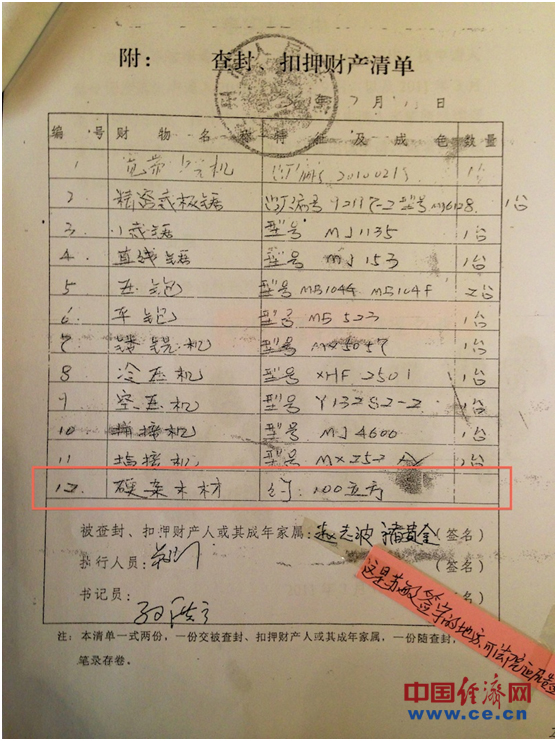 附： 查封、扣押财产清单
年7月 日
编号 财物名称 特征及成色 数量
1 机 2010021 1台
2 精密裁板锯 Y2117-2型号MJ6128 1台
3 小裁锯 型号 MJ1135 1台
4 直线锯 型号 MJ153 1台
5 压刨 型号 MB104G MB104F 2台
6 平刨 型号 MB523 1台
7 机 型号 MX5057 1台
8 冷压机 型号 XHF2501 1台
9 空压机 型号 Y132S2-2 1台
10 拼接机 型号 MJ4600 1台
11 指接机 型号 MX357 1台
12 硬杂木材 约：100立方
被查封、扣押财产人或其成年家属：赵志波 诸黄金（签名）
执行人员： （签名）
书记员：
注：本清单一式两份，一份交被查封、扣押财产人或其成年家属，一份随查封、
笔录存卷。
这是苏敏签字的地方，可法院
中国经济网
www.ce.cn